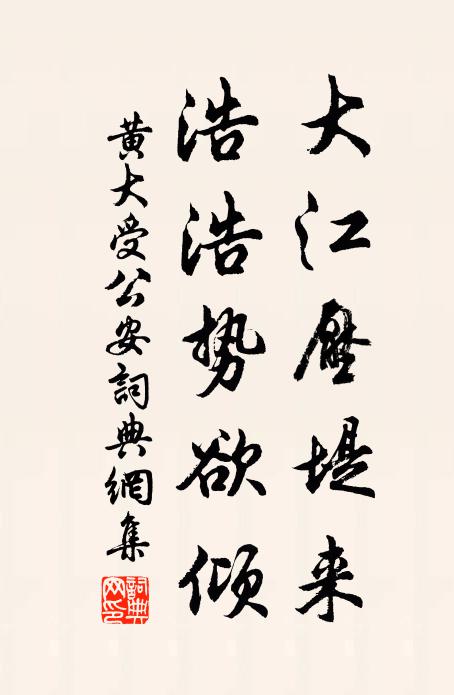 大江壓堤来
浩浩势欲倾
黄大受公安詞典網集
詞典网印